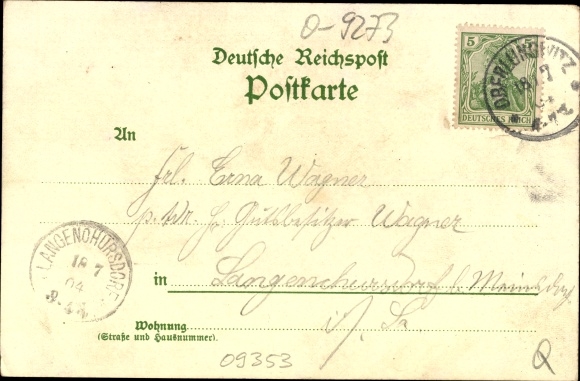 O-9273
Deutsche Reichspost
Postkarte
5
DEUTSCHES REICH
OBERLUNGWITZ
18 7
4-7
An
Frl. Erna Wagner
p. Adr. H. Gutsbesitzer Wagner
LANGENCHURSDORF
18 7
04
in Langenchursdorf b. Meinsdorf
i/ Sa.
Wohnung
(Straße und Hausnummer).
09353
Q